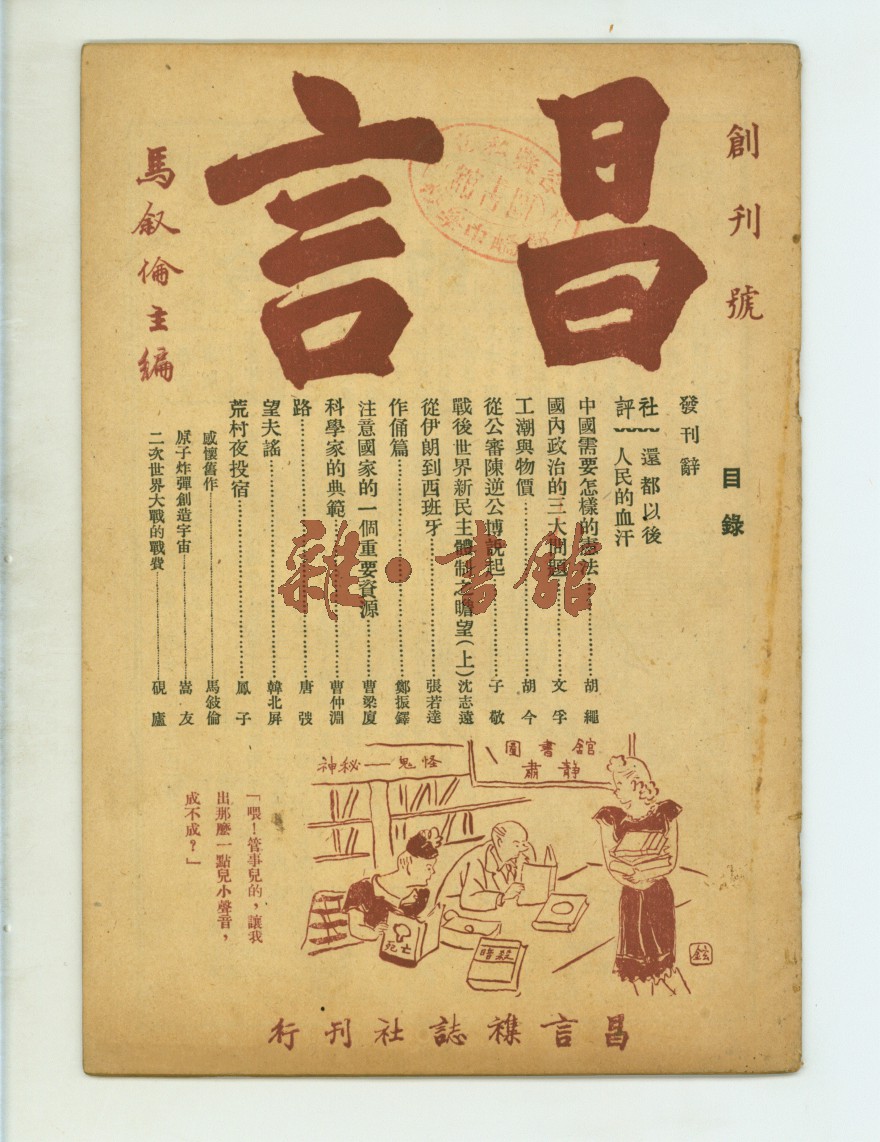 創刊號
昌言
馬叙倫主編
目錄
發刊辭
社評
還都以後
人民的血汗
中國需要怎樣的憲法 胡繩
國內政治的三大問題 文孚
工潮與物價 胡今
從公審陳逆公博說起 子敬
戰後世界新民主體制之瞻望(上) 沈志遠
從伊朗到西班牙 張若達
作俑篇 鄭振鐸
注意國家的一個重要資源 曹梁廈
科學家的典範 曹仲淵
路 唐弢
望夫謠 韓北屏
荒村夜投宿 鳳子
感懷舊作 馬敍倫
原子炸彈創造宇宙 嵩友
二次世界大戰的戰費 硯廬
雜·書館
圖書館
肅靜
神秘——鬼怪
死亡
暗殺
鉉
「喂!管事兒的,讓我
出那麼一點兒小聲音,
成不成?」
昌言襍誌社刊行